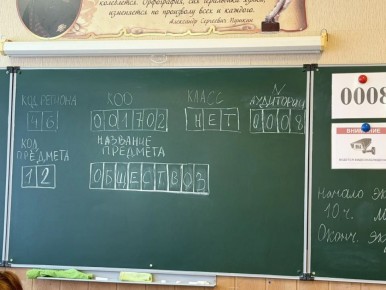 колеблется. Орфография, сия геральдика языка,
изменяется по произволу всех и каждого.
Александр Сергеевич Пушкин
КОД РЕГИОНА КОО КЛАСС N АУДИТОРИИ
46 001702 НЕТ 0008
КОД ПРЕДМЕТА НАЗВАНИЕ ПРЕДМЕТА
12 ОБЩЕСТВОЗ
0008
ВНИМАНИЕ
Начало эк
10 ч.
Оконч. эк